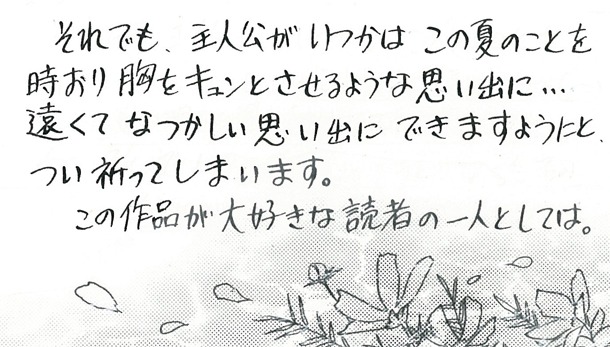 それでも、主人公がいつかは この夏のことを
時おり胸をキュンとさせるような思い出に…
遠くてなつかしい思い出に できますようにと、
つい祈ってしまいます。
この作品が大好きな読者の一人としては。